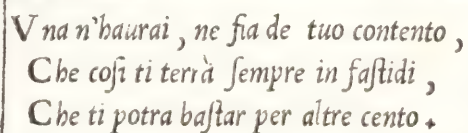 Vna n'haurai, ne fia de tuo contento,
Che coſi ti terrà ſempre in faſtidi,
Che ti potra baſtar per altre cento.